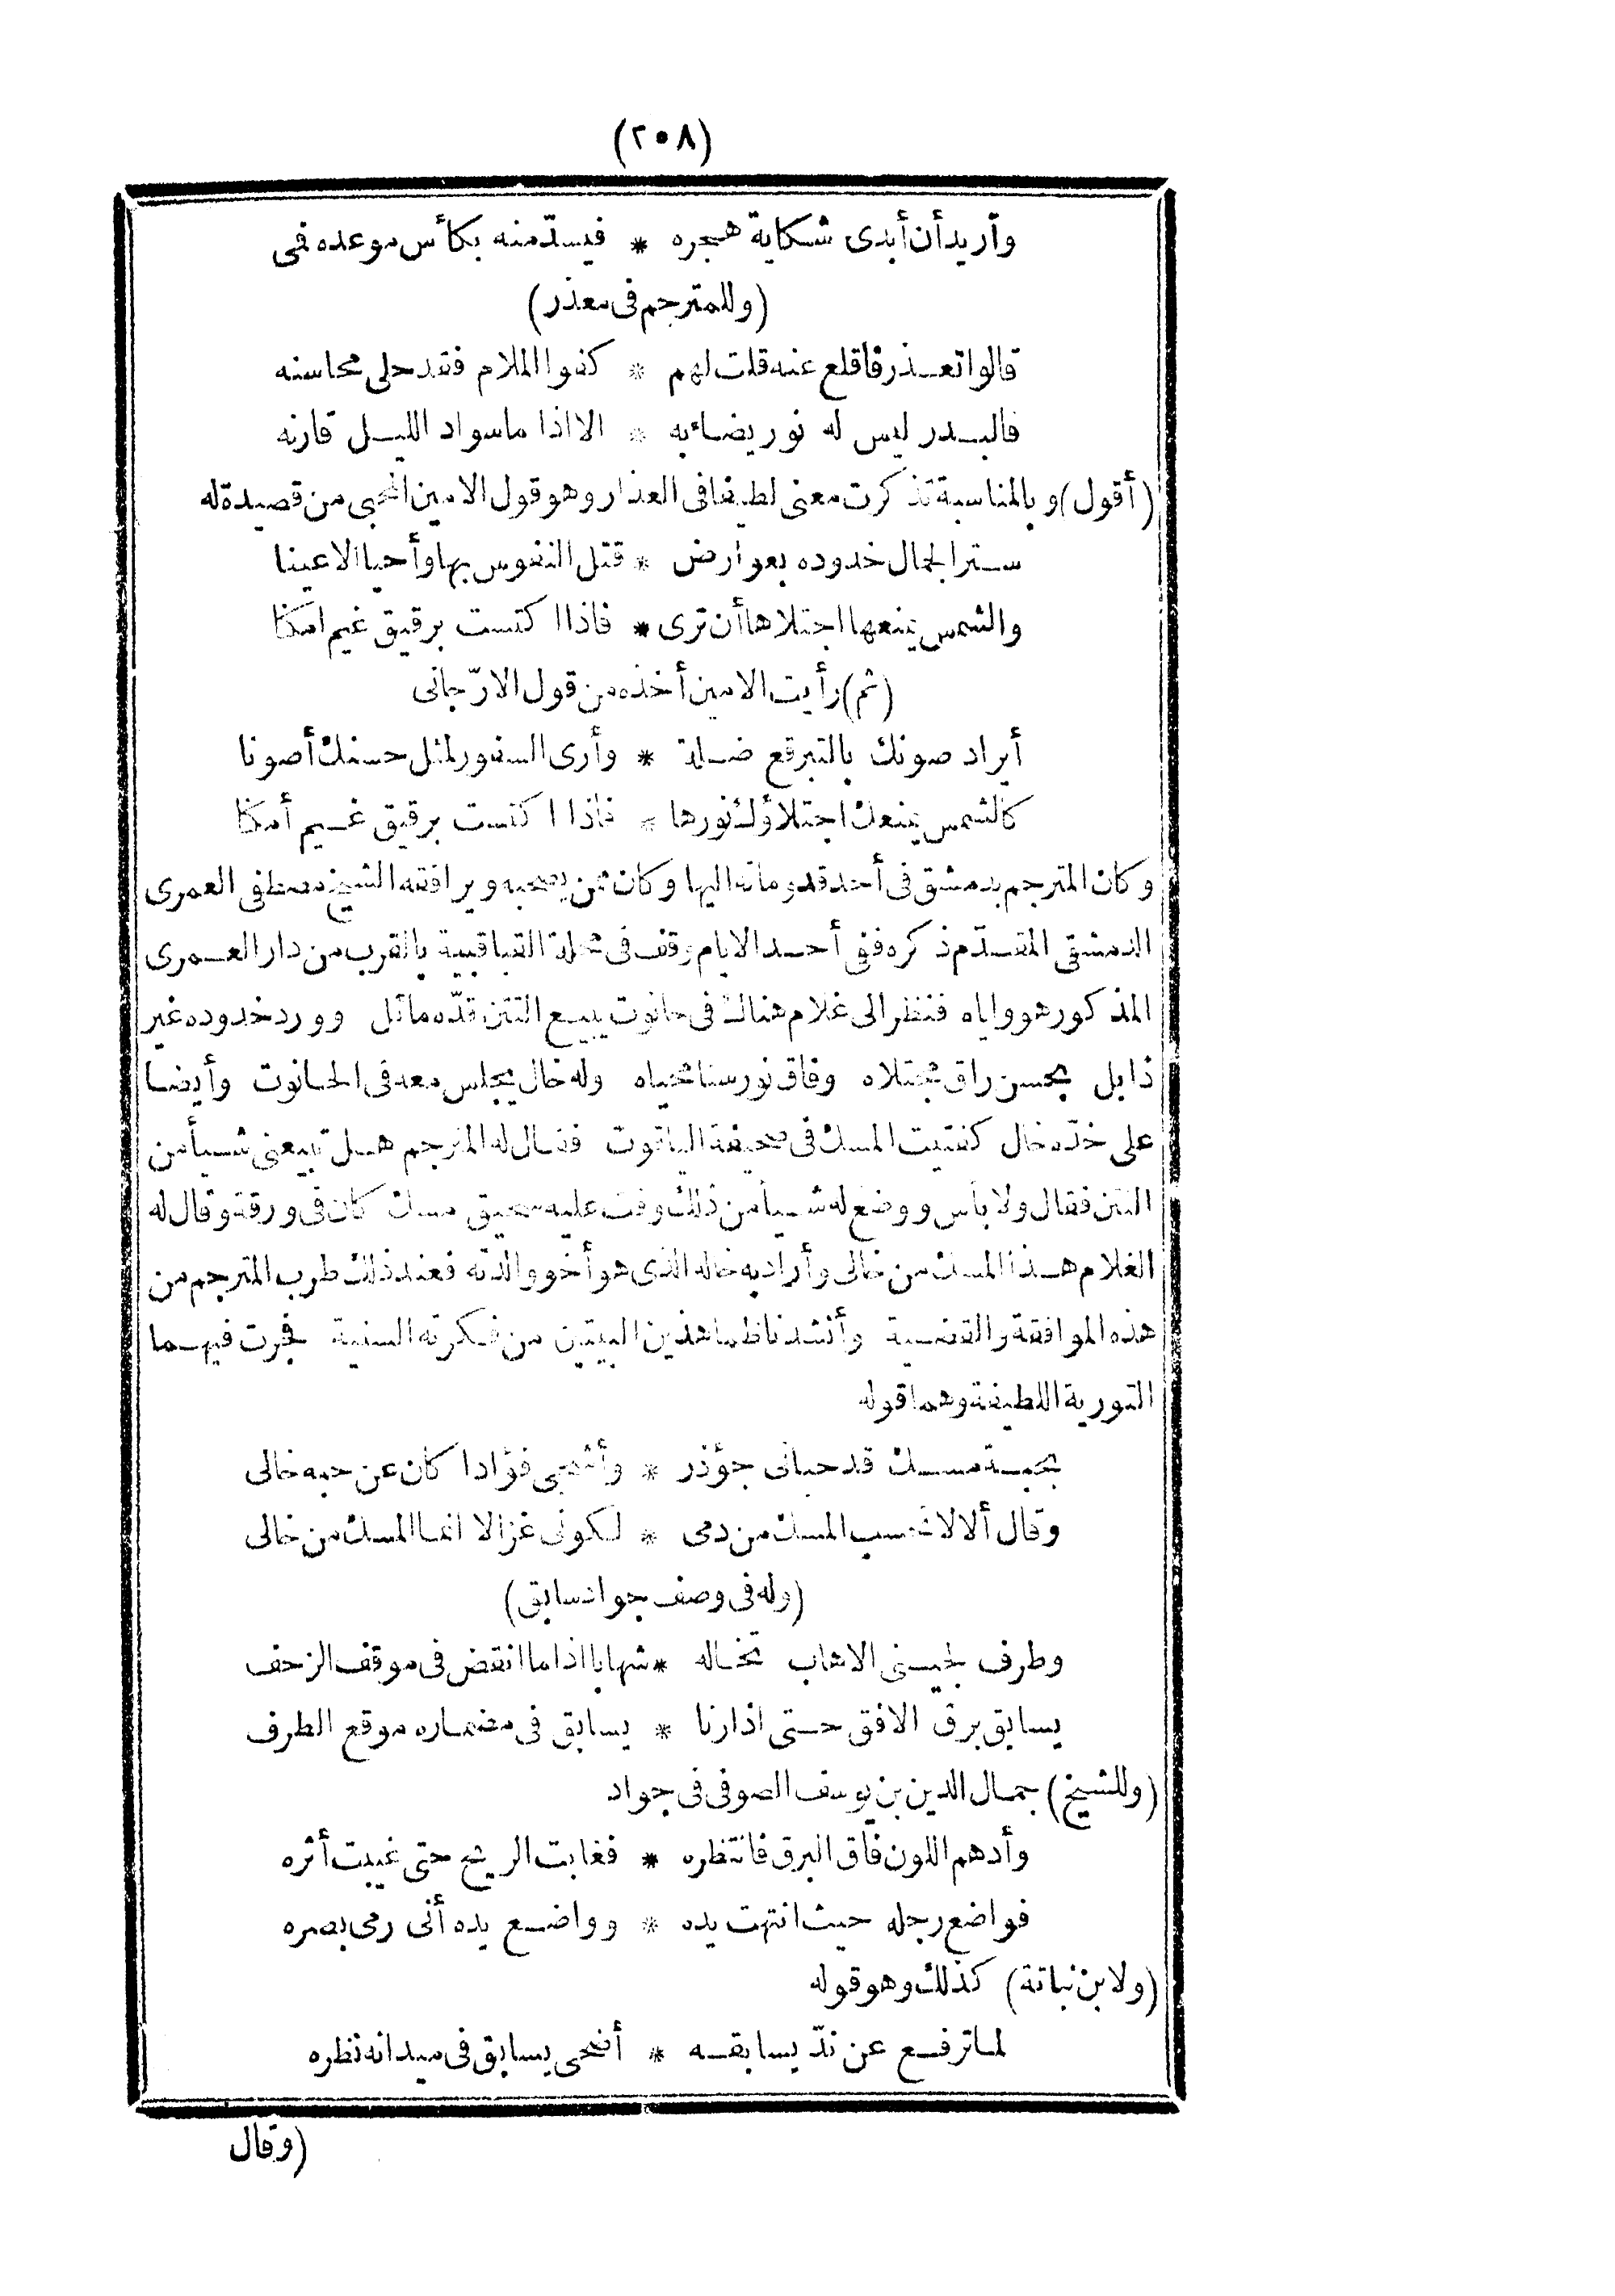 (٢٠٨)
وأريد أن أبدى شكاية هجره * فيسدّ منه بكأس موعده فى
(وللمترجم فى معذر)
قالوا تعذر فاقلع عنه قلت لهم * كفوا الملام فقد حلى محاسنه
فالبدر ليس له نور يضاء به * الا اذا ما سواد الليل قارنه
(أقول) وبالمناسبة تذكرت معنى لطيفا فى العذار وهو قول الامين المحبى من قصيدة له
ستر الجمال خدوده بعوارض * قتل النفوس بها وأحيا الاعينا
والشمس يمنعها اجتلاها أن ترى * فاذا اكتست برقيق غيم امكنا
(ثم) رأيت الامين أخذه من قول الارّجانى
أيراد صونك بالتبرقع ضلة * وأرى السفور لمثل حسنك أصونا
كالشمس يمنعك اجتلاؤك نورها * فاذا اكتست برقيق غيم أمكنا
وكان المترجم بدمشق فى أحد قدوماته اليها وكان ممن يصحبه ويرافقه الشيخ مصطفى العمرى
الدمشقى المقدّم ذكره ففى أحد الايام وقف فى محلة القباقبية بالقرب من دار العمرى
المذكور هو واياه فنظر الى غلام هناك فى حانوت يبيع التتن قدّه مائل وورد خدوده غير
ذابل بحسن راق مجتلاه وفاق نور سنا محياه وله خال يجلس معه فى الحانوت وأيضا
على خدّه خال كفتيت المسك فى صحيفة الياقوت فقال له المترجم هل تبيعنى شيأ من
التتن فقال ولا بأس ووضع له شيأ من ذلك وفت عليه سحيق مسك كان فى ورقة وقال له
الغلام هذا المسك من خالى وأراد به خاله الذى هو أخو والدته فعند ذلك طرب المترجم من
هذه الموافقة والقضية وأنشد ناظما هذين البيتين من فكرته السنية فجرت فيهما
التورية اللطيفة وهما قوله
بحبة مسك قد حبانى جؤذر * وأشجى فؤادا كان عن حبه خالى
وقال ألا لا تحسب المسك من دمى * لكونى غزالا انما المسك من خالى
(وله فى وصف جواد سابق)
وطرف لجينى الاهاب تخاله * شهابا اذا ما انقض فى موقف الزحف
يسابق برق الافق حتى اذا رنا * يسابق فى مضماره موقع الطرف
(وللشيخ) جمال الدين بن يوسف الصوفى فى جواد
وأدهم اللون فاق البرق فانتظره * فغابت الريح حتى غيبت أثره
فواضع رجله حيث انتهت يده * وواضع يده أنى رمى بصره
(ولابن نباتة) كذلك وهو قوله
لما ترفع عن ندّ يسابقه * أضحى يسابق فى ميدانه نظره
(وقال